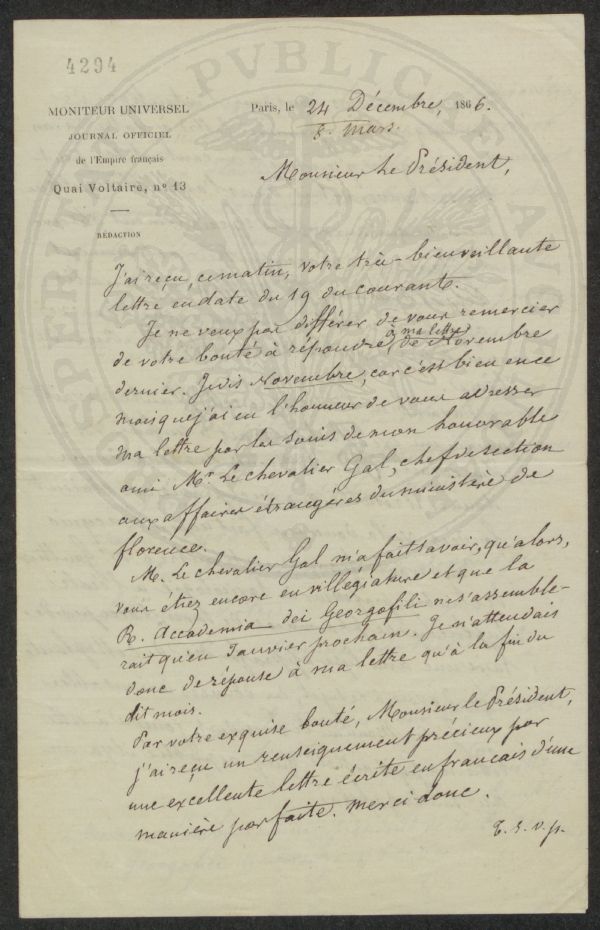 4294
PVBLICAE
PROSPERITATI
MONITEUR UNIVERSEL
JOURNAL OFFICIEL
de l'Empire français
Quai Voltaire, nº 13
RÉDACTION
Paris, le 24 Décembre, 1866.
8. Mars.
Monsieur Le Président,
J'ai reçu, ce matin, votre très-bienveillante
lettre en date du 19 du courant.
Je ne veux pas différer de vous remercier
de votre bonté à répondre à ma lettre de Novembre
dernier. Je dis Novembre, car c'est bien en ce
mois que j'ai eu l'honneur de vous adresser
ma lettre par les soins de mon honorable
ami Mr Le chevalier Gal, chef de section
aux affaires étrangères du ministère de
florence.
M. Le chevalier Gal m'a fait savoir, qu'alors,
vous étiez encore en villégiature et que la
R. Accademia dei Georgofili ne s'assemble-
rait qu'en Janvier prochain. Je n'attendais
donc de réponse à ma lettre qu'à la fin du
dit mois.
Par votre exquise bonté, Monsieur le Président,
j'ai reçu un renseignement précieux par
une excellente lettre écrite en francais d'une
manière parfaite. merci donc.
T. S. V. p.